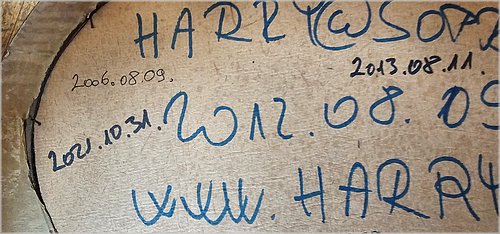 HARRY@SOPR
2006.08.09.
2013.08.11.
2021.10.31.
2012.08.09
WWW.HARRY